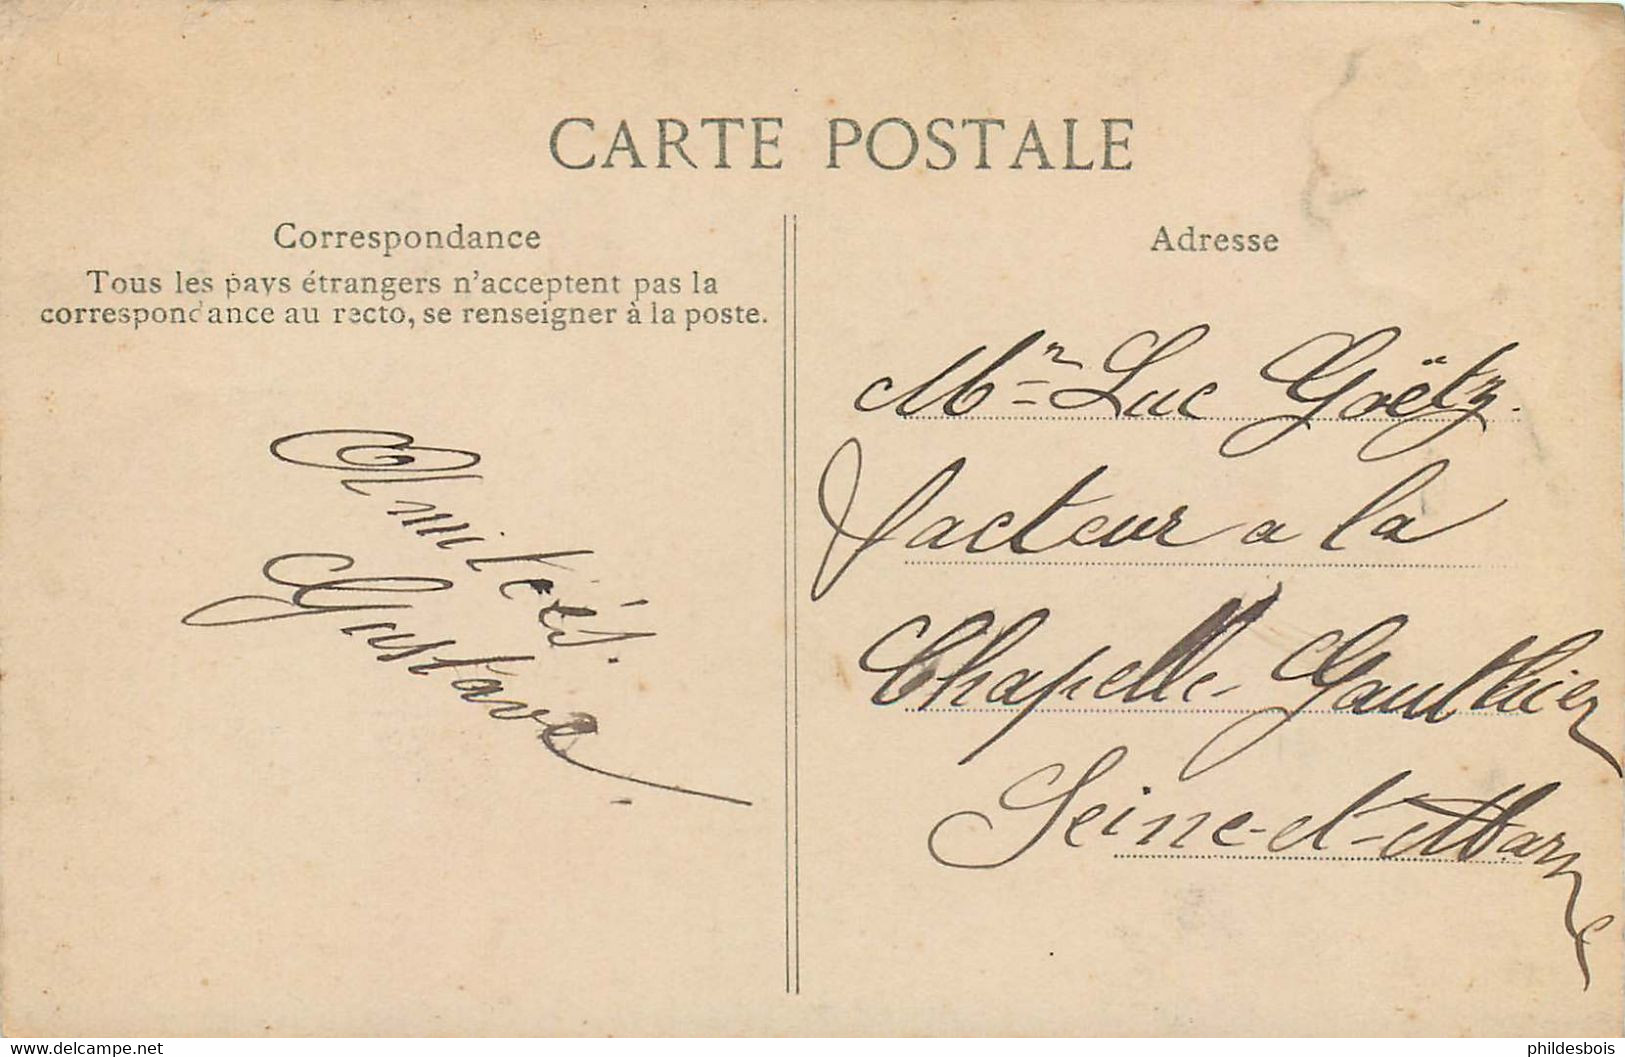 CARTE POSTALE
Correspondance
Tous les pays étrangers n'acceptent pas la
correspondance au recto, se renseigner à la poste.
Amitiés.
Gustave.
Adresse
Mr Luc Goëtz.
facteur a la
Chapelle-Gauthier
Seine-et-Marne
www.delcampe.net
phildesbois